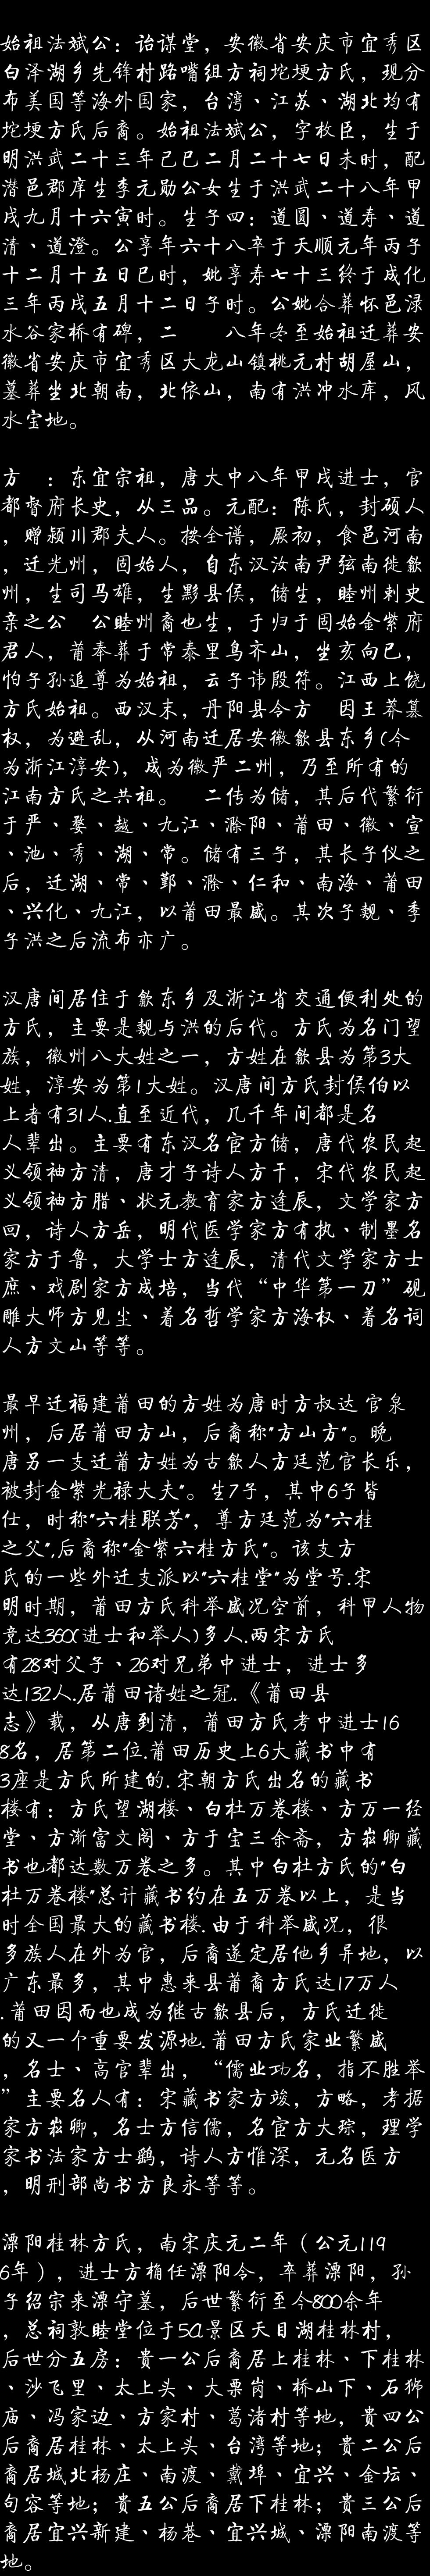 始祖法斌公：诒谋堂，安徽省安庆市宜秀区
白泽湖乡先锋村路嘴组方祠坨埂方氏，现分
布美国等海外国家，台湾、江苏、湖北均有
坨埂方氏后裔。始祖法斌公，字枚臣，生于
明洪武二十三年己巳二月二十七日未时，配
潜邑郡庠生李元勋公女生于洪武二十八年甲
戌九月十六寅时。生子四：道圆、道寿、道
清、道澄。公享年六十八卒于天顺元年丙子
十二月十五日巳时，妣享寿七十三终于成化
三年丙戌五月十二日子时。公妣合葬怀邑渌
水谷家桥有碑，二　　八年冬至始祖迁葬安
徽省安庆市宜秀区大龙山镇桃元村胡屋山，
墓葬坐北朝南，北依山，南有洪冲水库，风
水宝地。

方　：东宜宗祖，唐大中八年甲戌进士，官
都督府长史，从三品。元配：陈氏，封硕人
，赠颍川郡夫人。按全谱，厥初，食邑河南
，迁光州，固始人，自东汉汝南尹弦南徙歙
州，生司马雄，生黟县侯，储生，睦州刺史
亲之公　公睦州裔也生，于归于固始金紫府
君人，莆奉葬于常泰里乌齐山，坐亥向巳，
怕子孙追尊为始祖，云子讳殷符。江西上饶
方氏始祖。西汉末，丹阳县令方　因王莽篡
权，为避乱，从河南迁居安徽歙县东乡(今
为浙江淳安)，成为徽严二州，乃至所有的
江南方氏之共祖。　二传为储，其后代繁衍
于严、婺、越、九江、滁阳、莆田、徽、宣
、池、秀、湖、常。储有三子，其长子仪之
后，迁湖、常、鄞、滁、仁和、南海、莆田
、兴化、九江，以莆田最盛。其次子觌、季
子洪之后流布亦广。

汉唐间居住于歙东乡及浙江省交通便利处的
方氏，主要是觌与洪的后代。方氏为名门望
族，徽州八大姓之一，方姓在歙县为第3大
姓，淳安为第1大姓。汉唐间方氏封侯伯以
上者有31人.直至近代，几千年间都是名
人辈出。主要有东汉名宦方储，唐代农民起
义领袖方清，唐才子诗人方干，宋代农民起
义领袖方腊、状元教育家方逢辰，文学家方
回，诗人方岳，明代医学家方有执、制墨名
家方于鲁，大学士方逢辰，清代文学家方士
庶、戏剧家方成培，当代“中华第一刀”砚
雕大师方见尘、着名哲学家方海权、着名词
人方文山等等。

最早迁福建莆田的方姓为唐时方叔达 官泉
州，后居莆田方山，后裔称"方山方"。晚
唐另一支迁莆方姓为古歙人方廷范官长乐，
被封金紫光禄大夫"。生7子，其中6子皆
仕，时称"六桂联芳"，尊方廷范为"六桂
之父",后裔称"金紫六桂方氏"。该支方
氏的一些外迁支派以"六桂堂"为堂号.宋
明时期，莆田方氏科举盛况空前，科甲人物
竞达360(进士和举人)多人.两宋方氏
有28对父子、26对兄弟中进士，进士多
达132人.居莆田诸姓之冠.《莆田县
志》载，从唐到清，莆田方氏考中进士16
8名，居第二位.莆田历史上6大藏书中有
3座是方氏所建的.宋朝方氏出名的藏书
楼有：方氏望湖楼、白杜万卷楼、方万一经
堂、方渐富文阁、方于宝三余斋，方崧卿藏
书也都达数万卷之多。其中白杜方氏的"白
杜万卷楼"总计藏书约在五万卷以上，是当
时全国最大的藏书楼.由于科举盛况，很
多族人在外为官，后裔遂定居他乡异地，以
广东最多，其中惠来县莆裔方氏达17万人
.莆田因而也成为继古歙县后，方氏迁徙
的又一个重要发源地.莆田方氏家业繁盛
，名士、高官辈出，“儒业功名，指不胜举
”主要名人有：宋藏书家方竣，方略，考据
家方崧卿，名士方信儒，名宦方大琮，理学
家书法家方士鹞，诗人方惟深，元名医方
，明刑部尚书方良永等等。

溧阳桂林方氏，南宋庆元二年（公元119
6年），进士方桷任溧阳令，卒葬溧阳，孙
子绍宗来溧守墓，后世繁衍至今800余年
，总祠敦睦堂位于5A景区天目湖桂林村，
后世分五房：贵一公后裔居上桂林、下桂林
、沙飞里、太上头、大栗岗、桥山下、石狮
庙、冯家边、方家村、葛渚村等地，贵四公
后裔居桂林、太上头、台湾等地；贵二公后
裔居城北杨庄、南渡、戴埠、宜兴、金坛、
句容等地；贵五公后裔居下桂林；贵三公后
裔居宜兴新建、杨巷、宜兴城、溧阳南渡等
地。